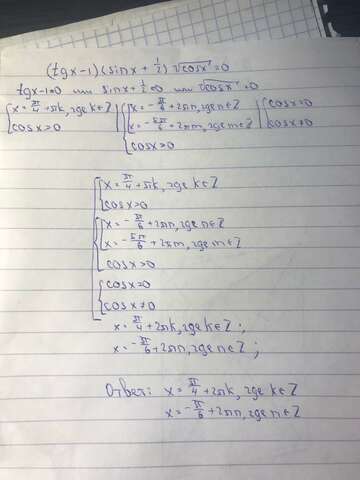 (tgx-1)(sinx+½)√cosx=0
tgx-1=0 или sinx+½=0 или √cosx=0
{x=π/4+πk, где k∈Z | {[x=-π/6+2πn, где n∈Z | {cosx=0
cosx>0 | x=-5π/6+2πm, где m∈Z | cosx≠0
cosx>0
[{x=π/4+πk, где k∈Z
cosx>0
{[x=-π/6+2πn, где n∈Z
x=-5π/6+2πm, где m∈Z
cosx>0
{cosx=0
cosx≠0
x=π/4+2πk, где k∈Z;
x=-π/6+2πn, где n∈Z;
Ответ: x=π/4+2πk, где k∈Z
x=-π/6+2πn, где n∈Z